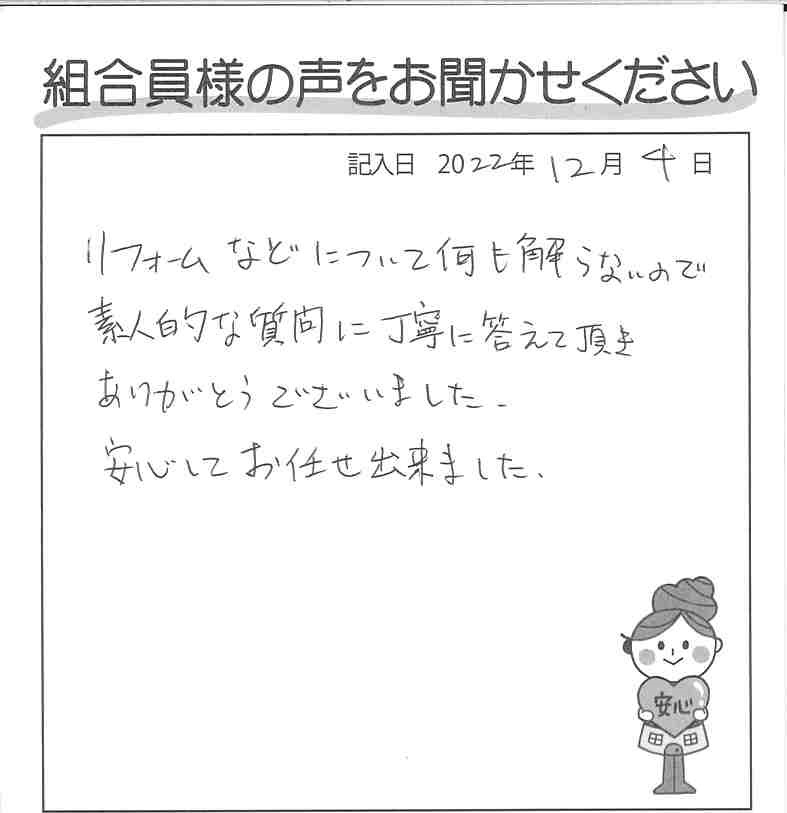 組合員様の声をお聞かせください
記入日 2022年 12月 4日
リフォームなどについて何も解らないので
素人的な質問に丁寧に答えて頂き
ありがとうございました。
安心してお任せ出来ました、
安心